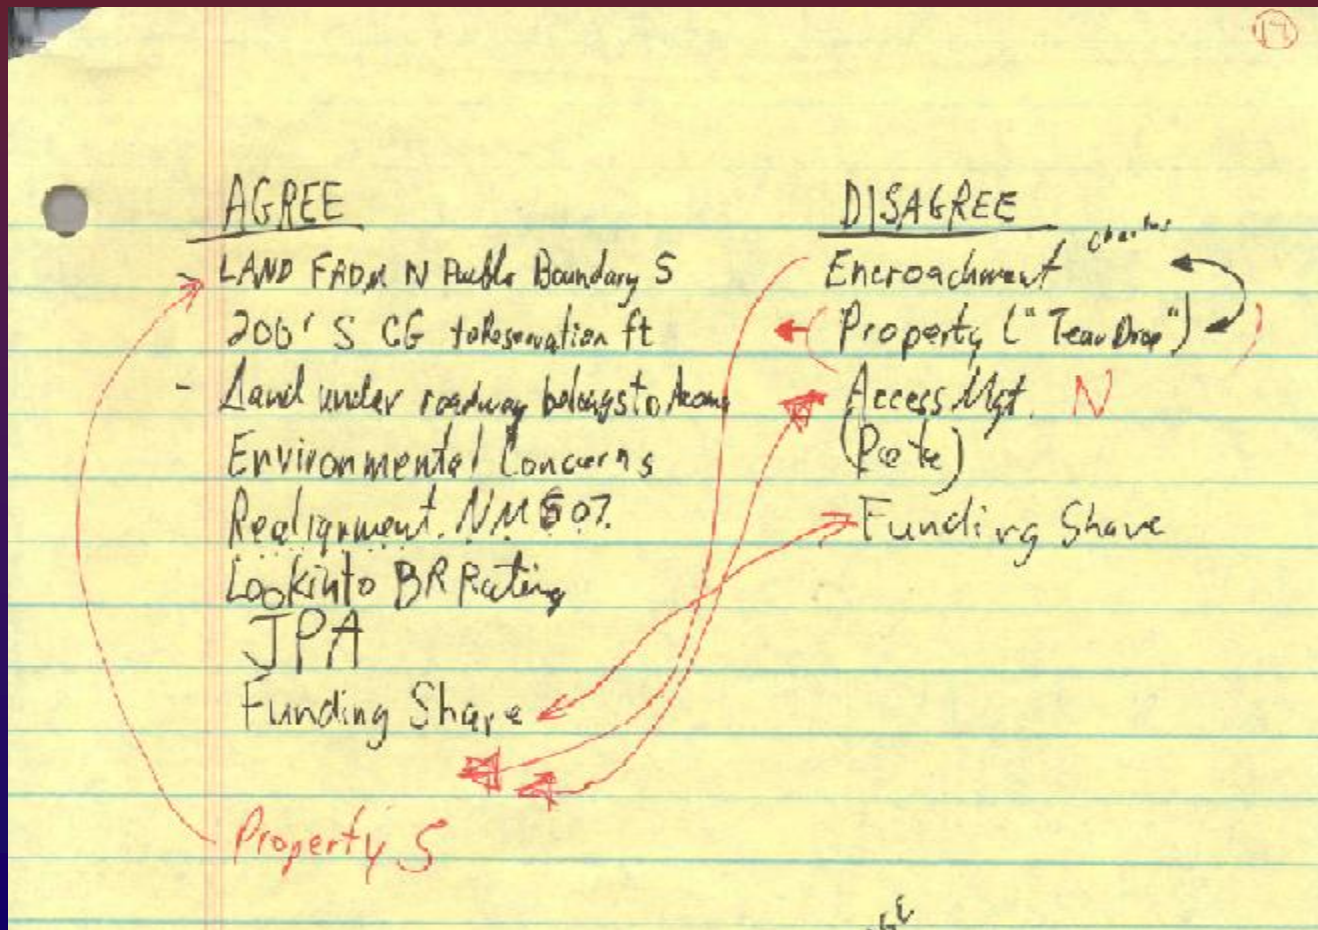 AGREE
LAND FROM N Pueblo Boundary S
200' S CG to Reservation ft
- Land under roadway belongs to Acoma
Environmental Concerns
Realignment. NM 507.
Look into BR Rating
JPA
Funding Share
Property S
DISAGREE
Encroachment
Property ("Tear Drop")
Access Mgt. N
(Pete)
Funding Share